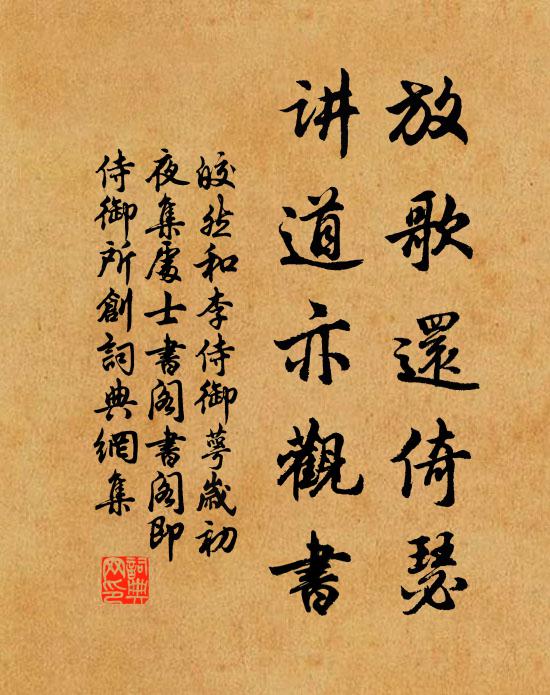 放歌還倚瑟
讲道亦觀書
皎然和李侍御萼歲初
夜集處士書阁書阁即
侍御所創詞典網集
詞典网印